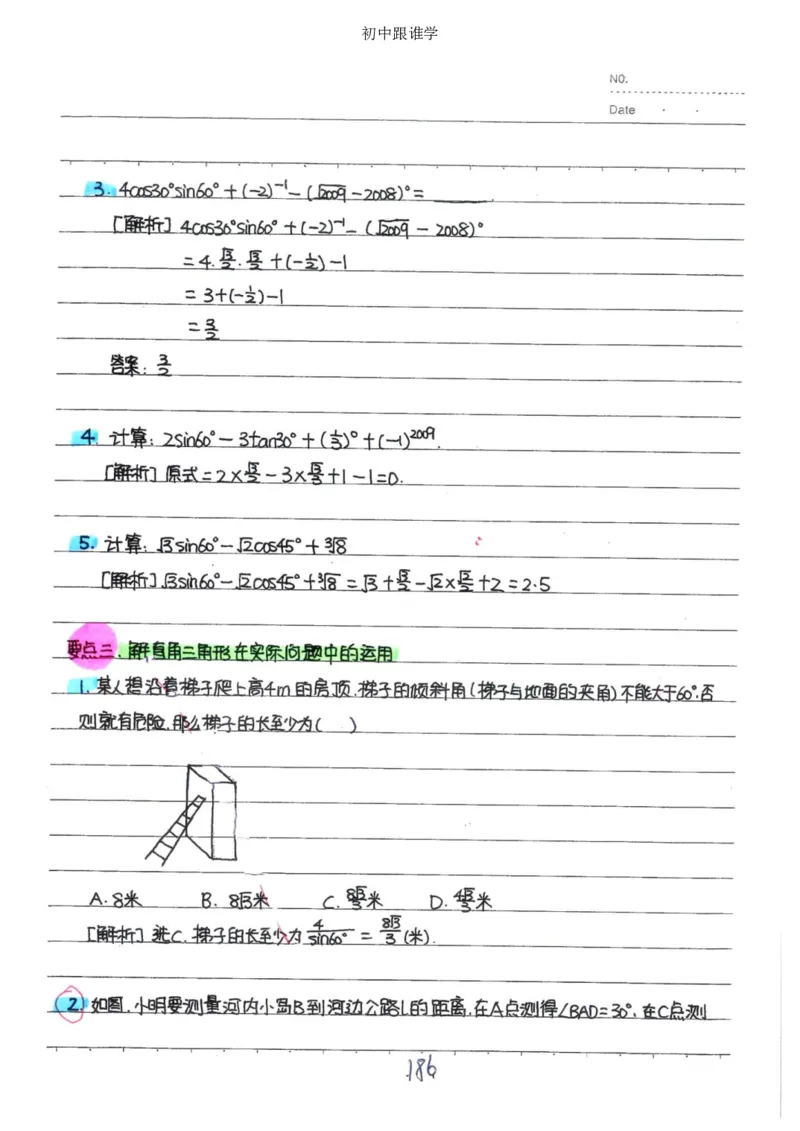 初中跟谁学
NO.
Date
3. 4cos30°sin60°+(-2)⁻¹-(√2009-2008)°=______.
[解析] 4cos30°sin60°+(-2)⁻¹-(√2009-2008)°
=4·√3/2·√3/2+(-1/2)-1
=3+(-1/2)-1
=3/2
答案: 3/2
4. 计算: 2sin60°-3tan30°+(1/3)°+(-1)²⁰⁰⁹.
[解析] 原式=2×√3/2-3×√3/3+1-1=0.
5. 计算: √3sin60°-√2cos45°+³√8
[解析] √3sin60°-√2cos45°+³√8=√3+√3/2-√2×√2/2+2=2.5
要点三、解直角三角形在实际问题中的运用
1. 某人想沿着梯子爬上高4m的房顶,梯子的倾斜角(梯子与地面的夹角)不能大于60°,否
则就有危险,那么梯子的长至少为( )
A. 8米 B. 8√3米 C. 8√3/3米 D. 4√3/3米
[解析] 选C. 梯子的长至少为4/sin60°=8√3/3(米).
2. 如图,小明要测量河内小岛B到河边公路l的距离,在A点测得∠BAD=30°,在C点测
186